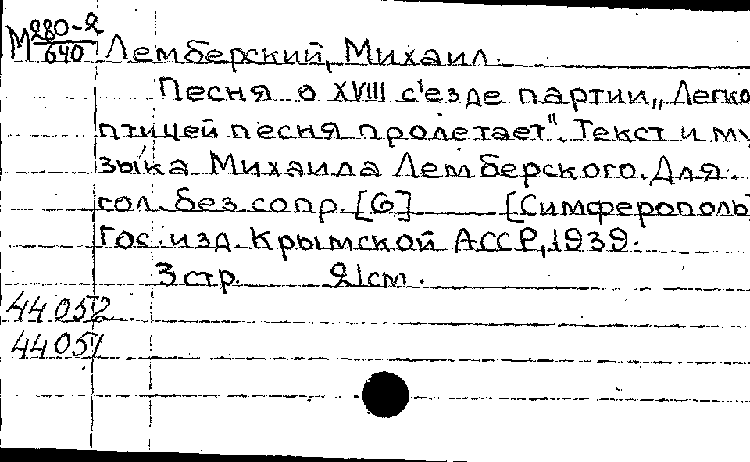 М 280-2
640
Лемберский, Михаил.
Песня о XVIII с'езде партии „Легко
птицей песня пролетает". Текст и му
зыка Михаила Лемберского. Для
гол. без сопр. [G] [Симферополь]
Гос. изд. Крымской АССР, 1939.
3 стр. 21 см.
44052
44051